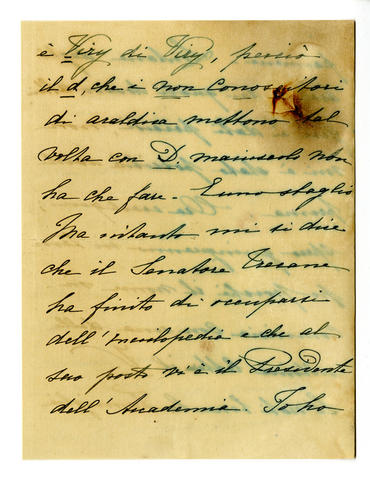 è Viry di Viry, perciò
il d, che i non conoscitori
di araldica mettono tal
volta con D. maiuscolo non
ha che fare. È uno sbaglio
Ma intanto mi si dice
che il Senatore Treccani
ha finito di occuparsi
dell'Enciclopedia e che al
suo posto vi è il Presidente
dell'Academia. Io ho